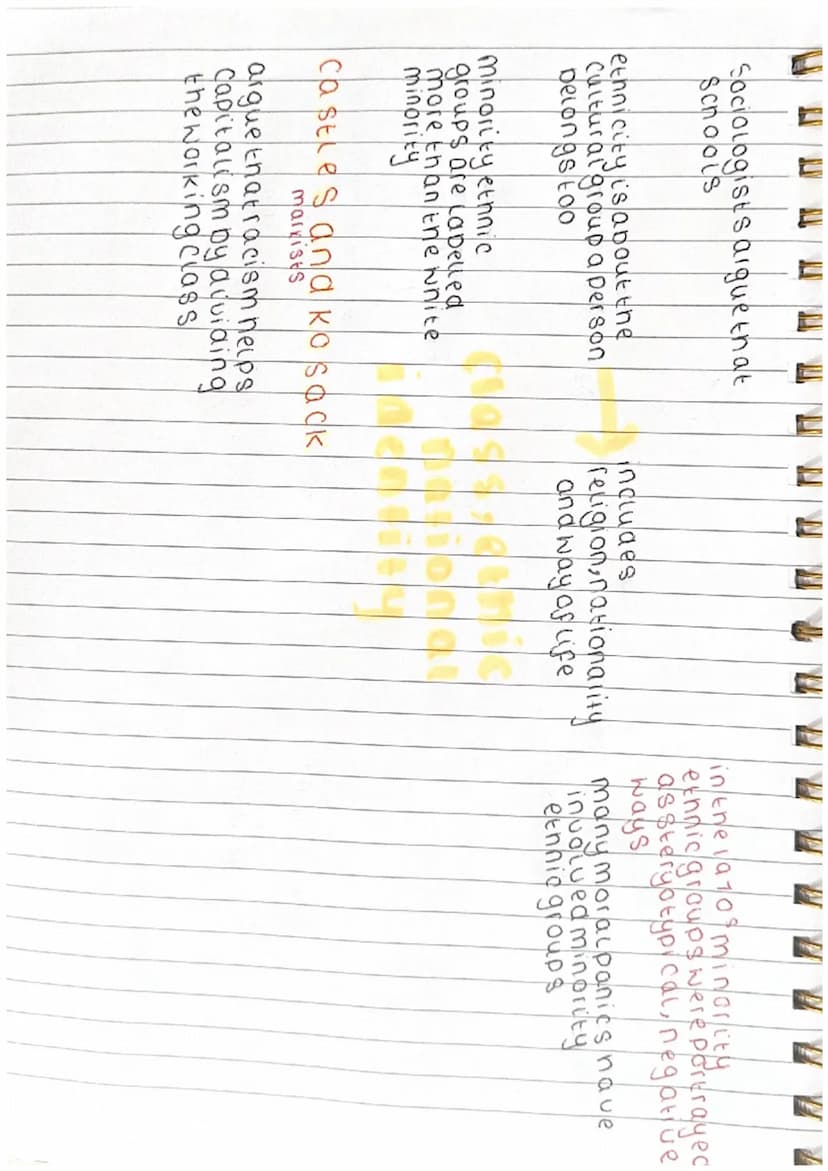 sociologists argue that
schools
ethnicity is about the
cultural group a person
belongs too
includes
religion, nationality
and way of life
minority ethnic
groups are labelled
more than the white
minority
class, ethnic
national
identity
castles and kosack
marxists
argue that racism helps
capitalism by dividing
the working class
in the 1970s minority
ethnic groups were portrayed
as steryotypical, negative
ways
many moral panics have
involved minority
ethnic groups